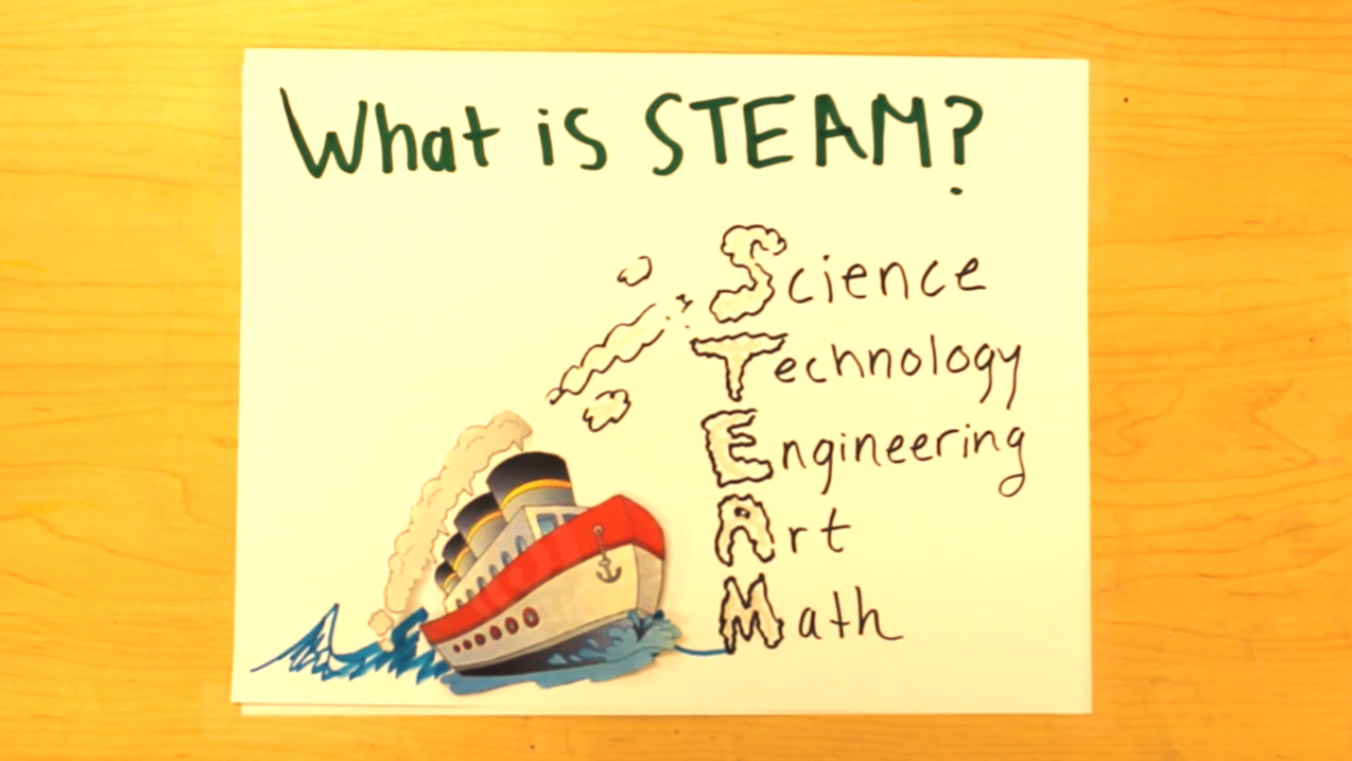 What is STEAM?
Science
Technology
Engineering
Art
Math